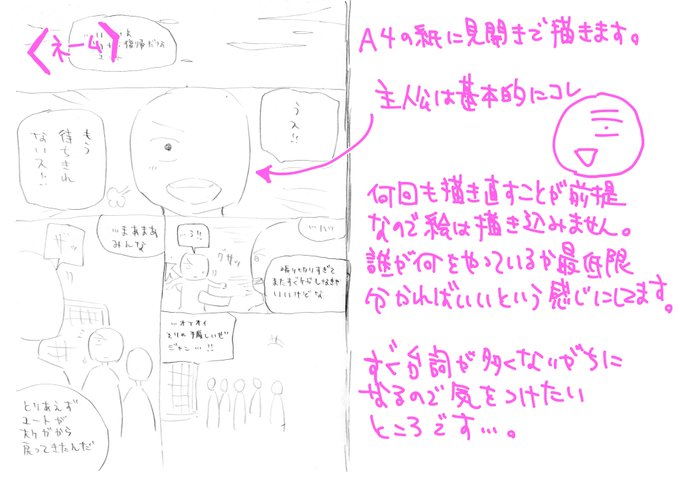 <ネーム>
復帰だっよ
うス!!
もう
待ちきれ
ないス!!
…まぁまぁ
みんな
ザッ
…る!!
グサッ
張りきりすぎて
またすぐケガしなきゃ
いいけどな
…オイオイ
そりゃ手厳しいぜ
ジャン…!!
とりあえず
ユートが
大ケガから
戻ってきたんだ
A4の紙に見開きで描きます。
主人公は基本的にコレ
何回も描き直すことが前提
なので絵は描き込みません。
誰が何をやっているか最低限
分かればいいという感じにしてます。
すぐ台詞が多くなりがちに
なるので気をつけたい
ところです…。